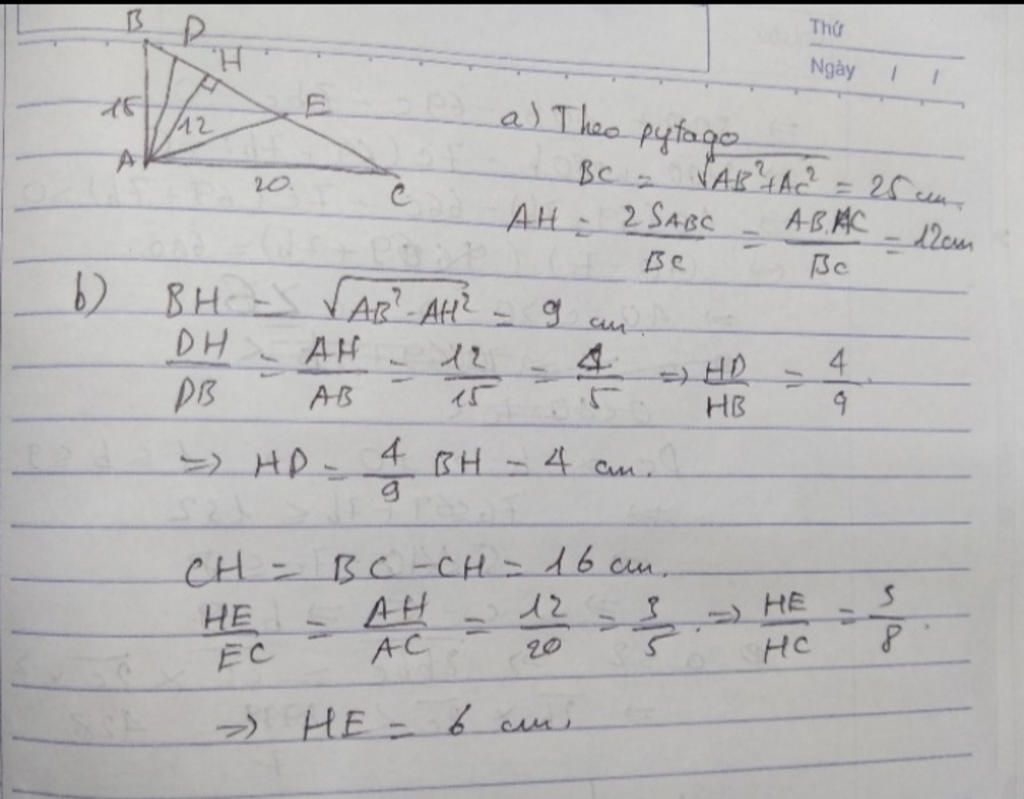 Thứ
Ngày / /
B D H E
15 12
A 20 C
a) Theo pytago
BC = √AB²+AC² = 25 cm.
AH = 2SABC/BC = AB.AC/BC = 12cm
b) BH = √AB²-AH² = 9 cm.
DH/DB = AH/AB = 12/15 = 4/5 => HD/HB = 4/9.
=> HD = 4/9 BH = 4 cm.
CH = BC - CH = 16 cm.
HE/EC = AH/AC = 12/20 = 3/5. => HE/HC = 3/8.
=> HE = 6 cm.